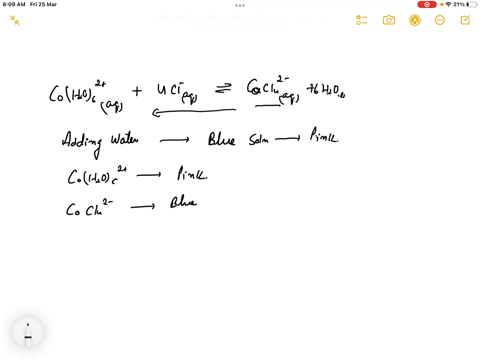 6:09 AM Fri 25 Mar 21%
Co(H2O)6 2+ (aq) + 4Cl- (aq) ⇌ CoCl4 2- (aq) + 6H2O
Adding Water → Blue Soln → Pink
Co(H2O)6 2+ → Pink
CoCl4 2- → Blue